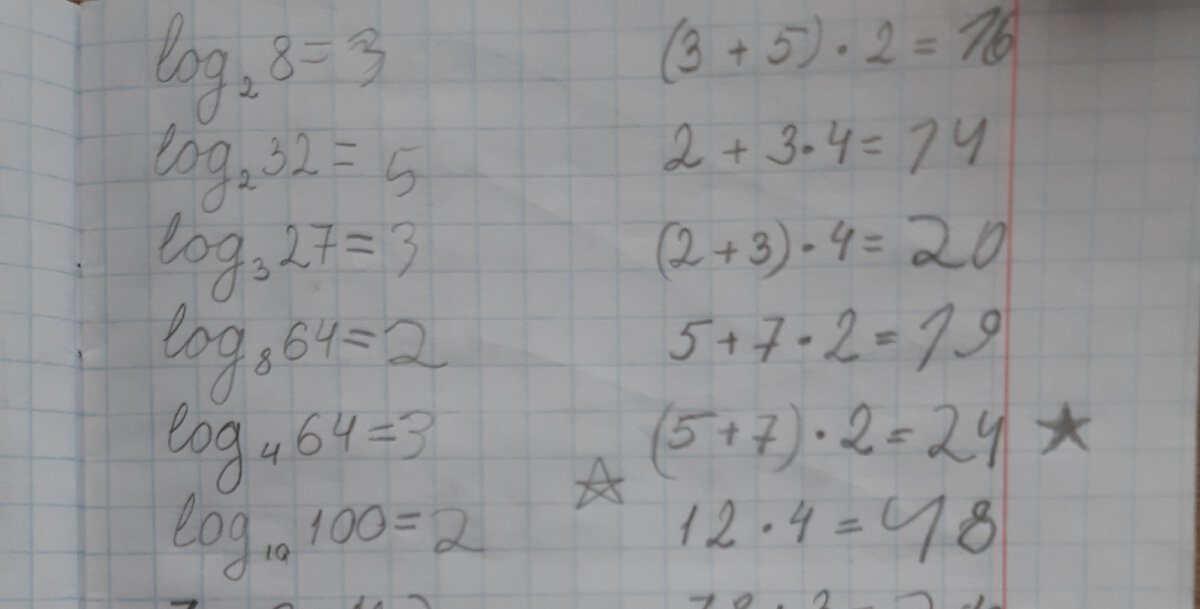 log₂ 8 = 3
log₂ 32 = 5
log₃ 27 = 3
log₈ 64 = 2
log₄ 64 = 3
log₁₀ 100 = 2
(3 + 5) · 2 = 16
2 + 3 · 4 = 14
(2 + 3) · 4 = 20
5 + 7 · 2 = 19
(5 + 7) · 2 = 24
12 · 4 = 48